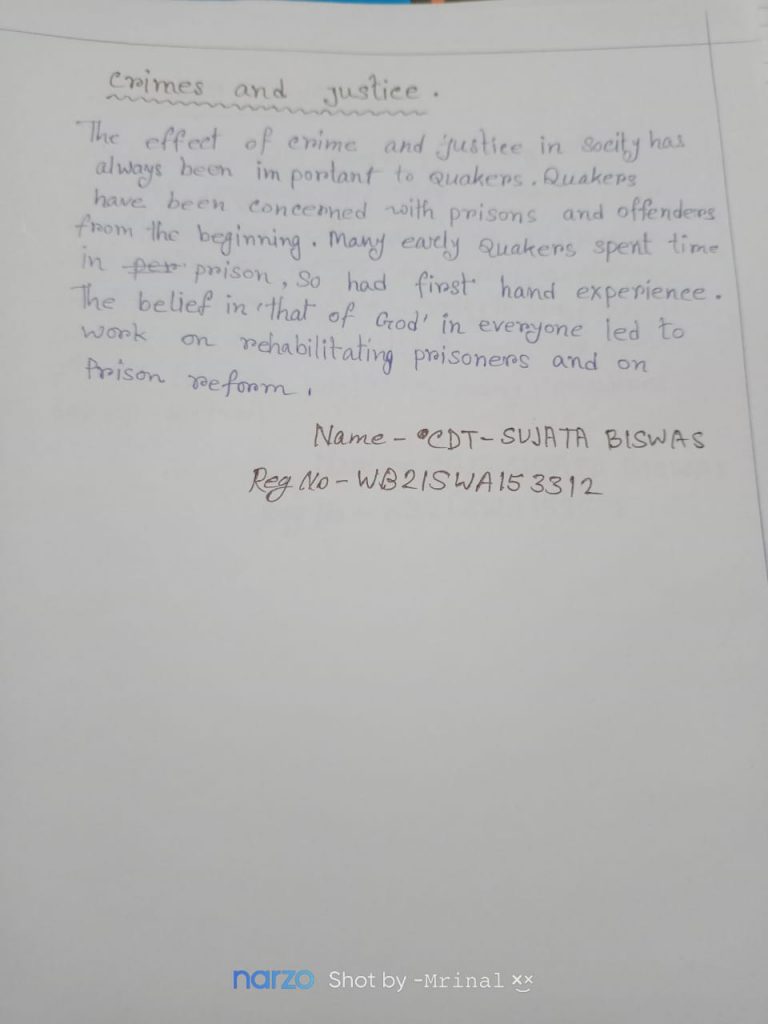 Crimes and justice.
The effect of crime and justice in socity has
always been important to Quakers. Quakers
have been concerned with prisons and offenders
from the beginning. Many early Quakers spent time
in per prison, So had first hand experience.
The belief in 'that of God' in everyone led to
work on rehabilitating prisoners and on
Prison reform.
Name - CDT- SUJATA BISWAS
Reg No - WB21SWA153312
narzo Shot by -Mrinal